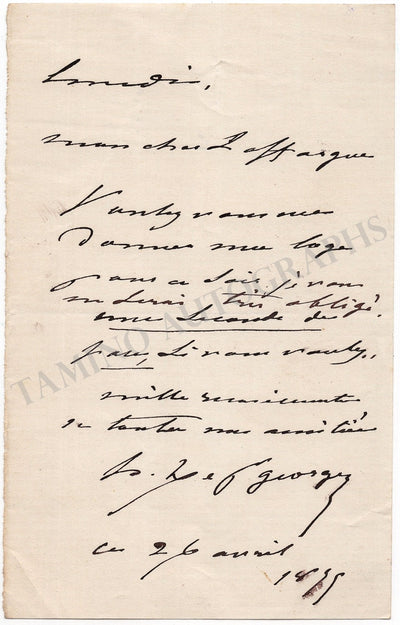 Lundi,
mon cher Laffargue
Voulez vous me
donner une loge
pour ce soir, je vous
en serai très obligé.
une seconde de
face, si vous voulez.
mille remerciements
et toutes mes amitiés
h. de St georges
ce 26 avril
TAMINO AUTOGRAPHS